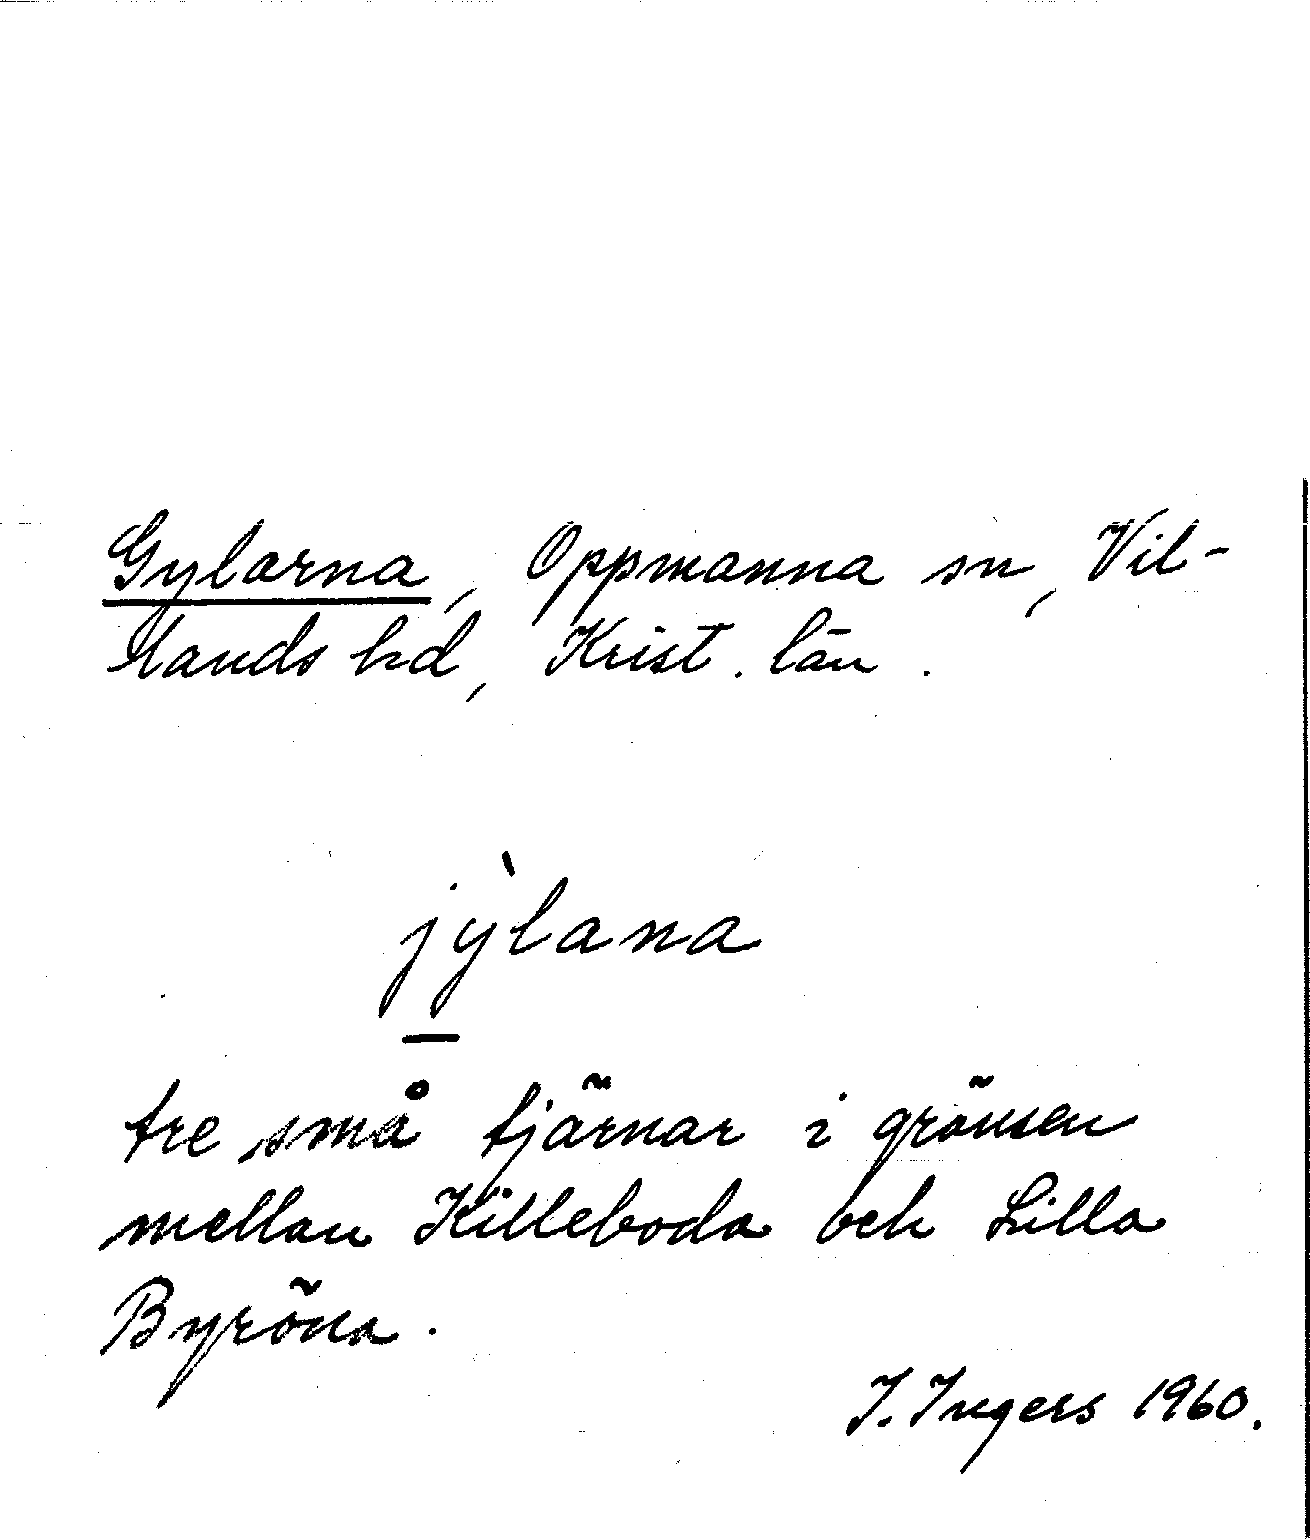 Gylarna, Oppmanna sn, Vil-
lands hd, Krist. län.
jỳ̠lana
tre små tjärnar i gränsen
mellan Killeboda och Lilla
Byröna.
I. Ingers 1960.